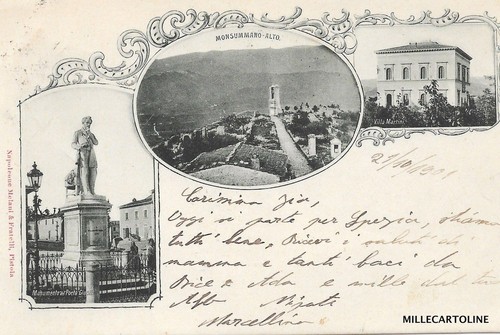 MONSUMMANO-ALTO.
Villa Martini
Monumento al Poeta
Napoleone Melani & Fratelli, Pistoia
Carissima Zia,
Oggi si parte per Spezia, stiamo
tutti bene, Ricevi i saluti di
mamma e tanti baci da
Bice e Ada e mille dal tuo
Aff. Nipote
Marcellino
MILLECARTOLINE